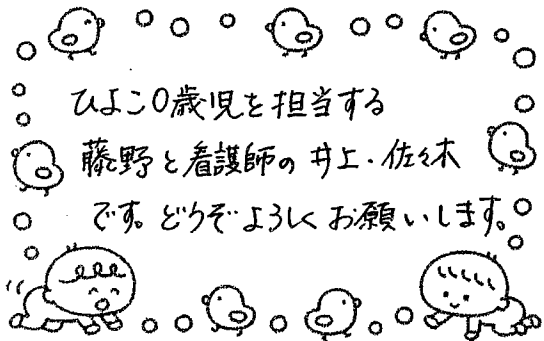 ひよこ0歳児を担当する
藤野と看護師の井上・佐々木
です。どうぞよろしくお願いします。